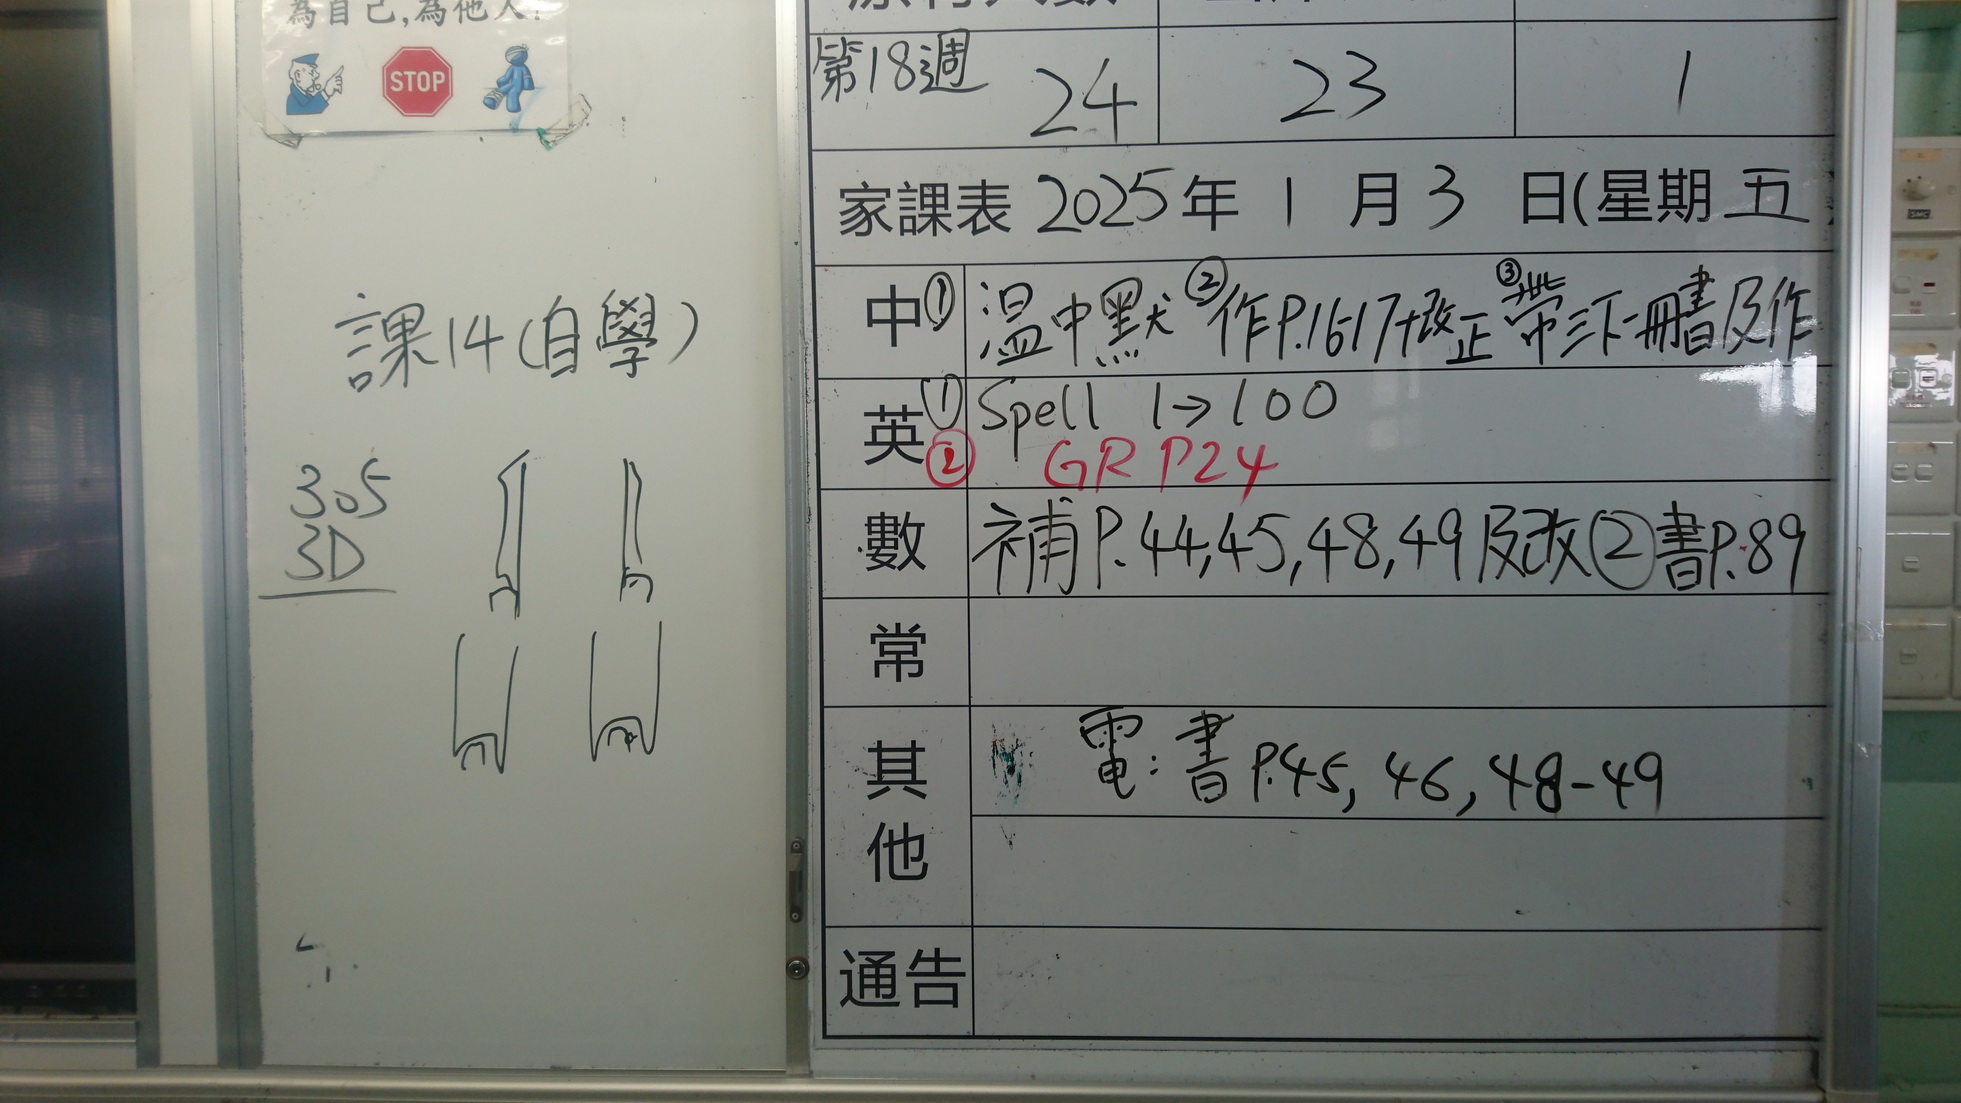 為自己,為他人!
STOP
課14(自學)
305
3D
第18週 24 23 1
家課表 2025年 1 月 3 日(星期 五
中 ① 溫中默 ② 作P.16-17+改正 ③ 帶三下一冊書及作
英 ① Spell 1→100
② GR P24
數 補P.44,45,48,49及改 ② 書P.89
常
其他 電:書P.45, 46, 48-49
通告